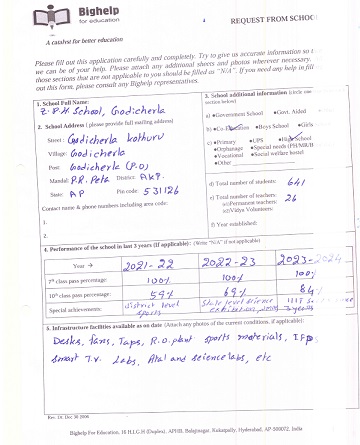 Bighelp
for Education
A catalyst for better education
REQUEST FROM SCHOO
Please fill out this application carefully and completely. Try to give us accurate information so t
we can be of your help. Please attach any additional sheets and photos wherever necessary.
those sections that are not applicable to you should be filled as "N/A". If you need any help in filli
out this form, please consult any Bighelp representatives.
1. School Full Name:
Z.P.H. School, Godicherla
2. School Address ( please provide full mailing address)
Street: Godicherla kothuru
Village: Godicherla
Post: Godicherla (P.O)
Mandal: P.R. Peta District: AKP.
State: AP Pin code: 531126
Contact name & phone numbers including area code:
1.
2.
3. School additional information (circle one
section below)
a) ●Government School ●Govt. Aided
b) ●Co Education ●Boys School ●Girls
c) ●Primary ●UPS ●High School
●Orphanage ●Special needs (PH/MR/B
●Vocational ●Social welfare hostel
●Other
d) Total number of students: 641
e) Total number of teachers: 26
i) Permanent teachers:
ii) Vidya Volunteers:
f) Year established:
4. Performance of the school in last 3 years (If applicable): (Write "N/A" if not applicable)
Year → 2021-22 2022-23 2023-2024
7th class pass percentage: 100% 100% 100%
10th class pass percentage: 59% 69% 84%
Special achievements: District level sports State level science exhibition,
5. Infrastructure facilities available as on date (Attach any photos of the current conditions, if applicable):
Desks, fans, Taps, R.O. plant sports materials, IFP
smart T.V. Labs, Atal and science labs, etc
Rev. 10. Dec 30 2006
Bighelp For Education, 16 H.I.G.H (Duplex), APHB, Balajinagar, Kukatpally, Hyderabad, AP 500072, India